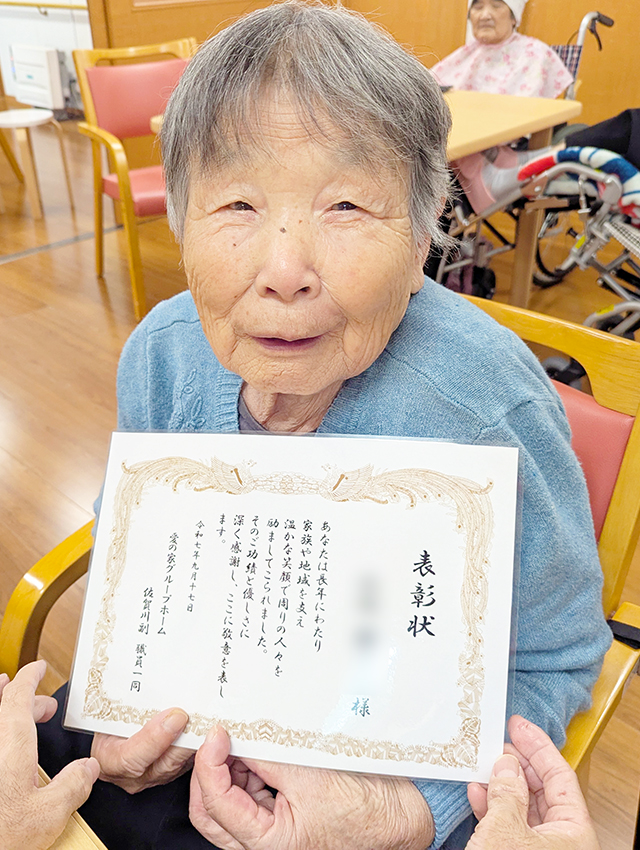 表彰状
様
あなたは長年にわたり
家族や地域を支え
温かな笑顔で周りの人々を
励ましてこられました。
そのご功績と優しさに
深く感謝し、ここに敬意を表し
ます。
令和七年九月十七日
愛の家グループホーム
佐賀川副 職員一同